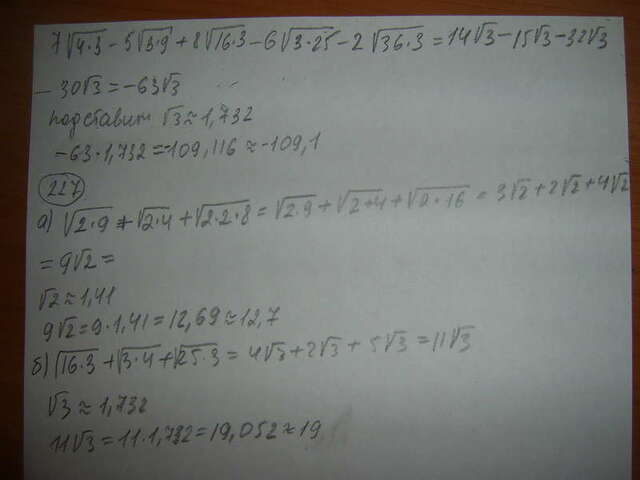 7√4·3 - 5√3·9 + 8√16·3 - 6√3·25 - 2√36·3 = 14√3 - 15√3 - 32√3
- 30√3 = -63√3
подставим √3 ≈ 1,732
-63·1,732 = 109,116 ≈ -109,1
227
а) √2·9 + √2·4 + √2·2·8 = √2·9 + √2+4 + √2·16 = 3√2 + 2√2 + 4√2
= 9√2 =
√2 ≈ 1,41
9√2 = 9·1,41 = 12,69 ≈ 12,7
б) √16·3 + √3·4 + √25·3 = 4√3 + 2√3 + 5√3 = 11√3
√3 ≈ 1,732
11√3 = 11·1,732 = 19,052 ≈ 19